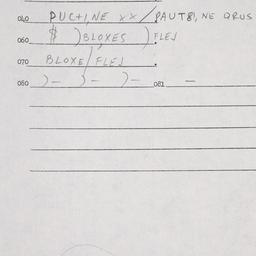 040 PUCTI,NE XX / PAUT8I, NE QRUS
060 $ ) BLOXES ) FLEJ
070 BLOXE / FLEJ
080 )- )- )- 081 -